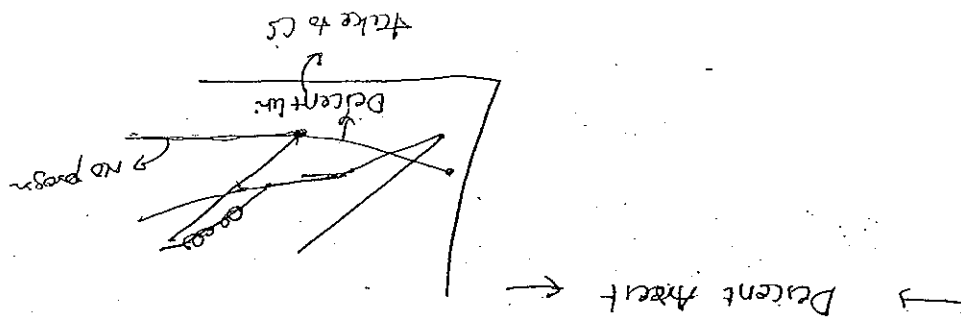 → Descent Arrest ←
→ No progn
Descent lin
take to CS